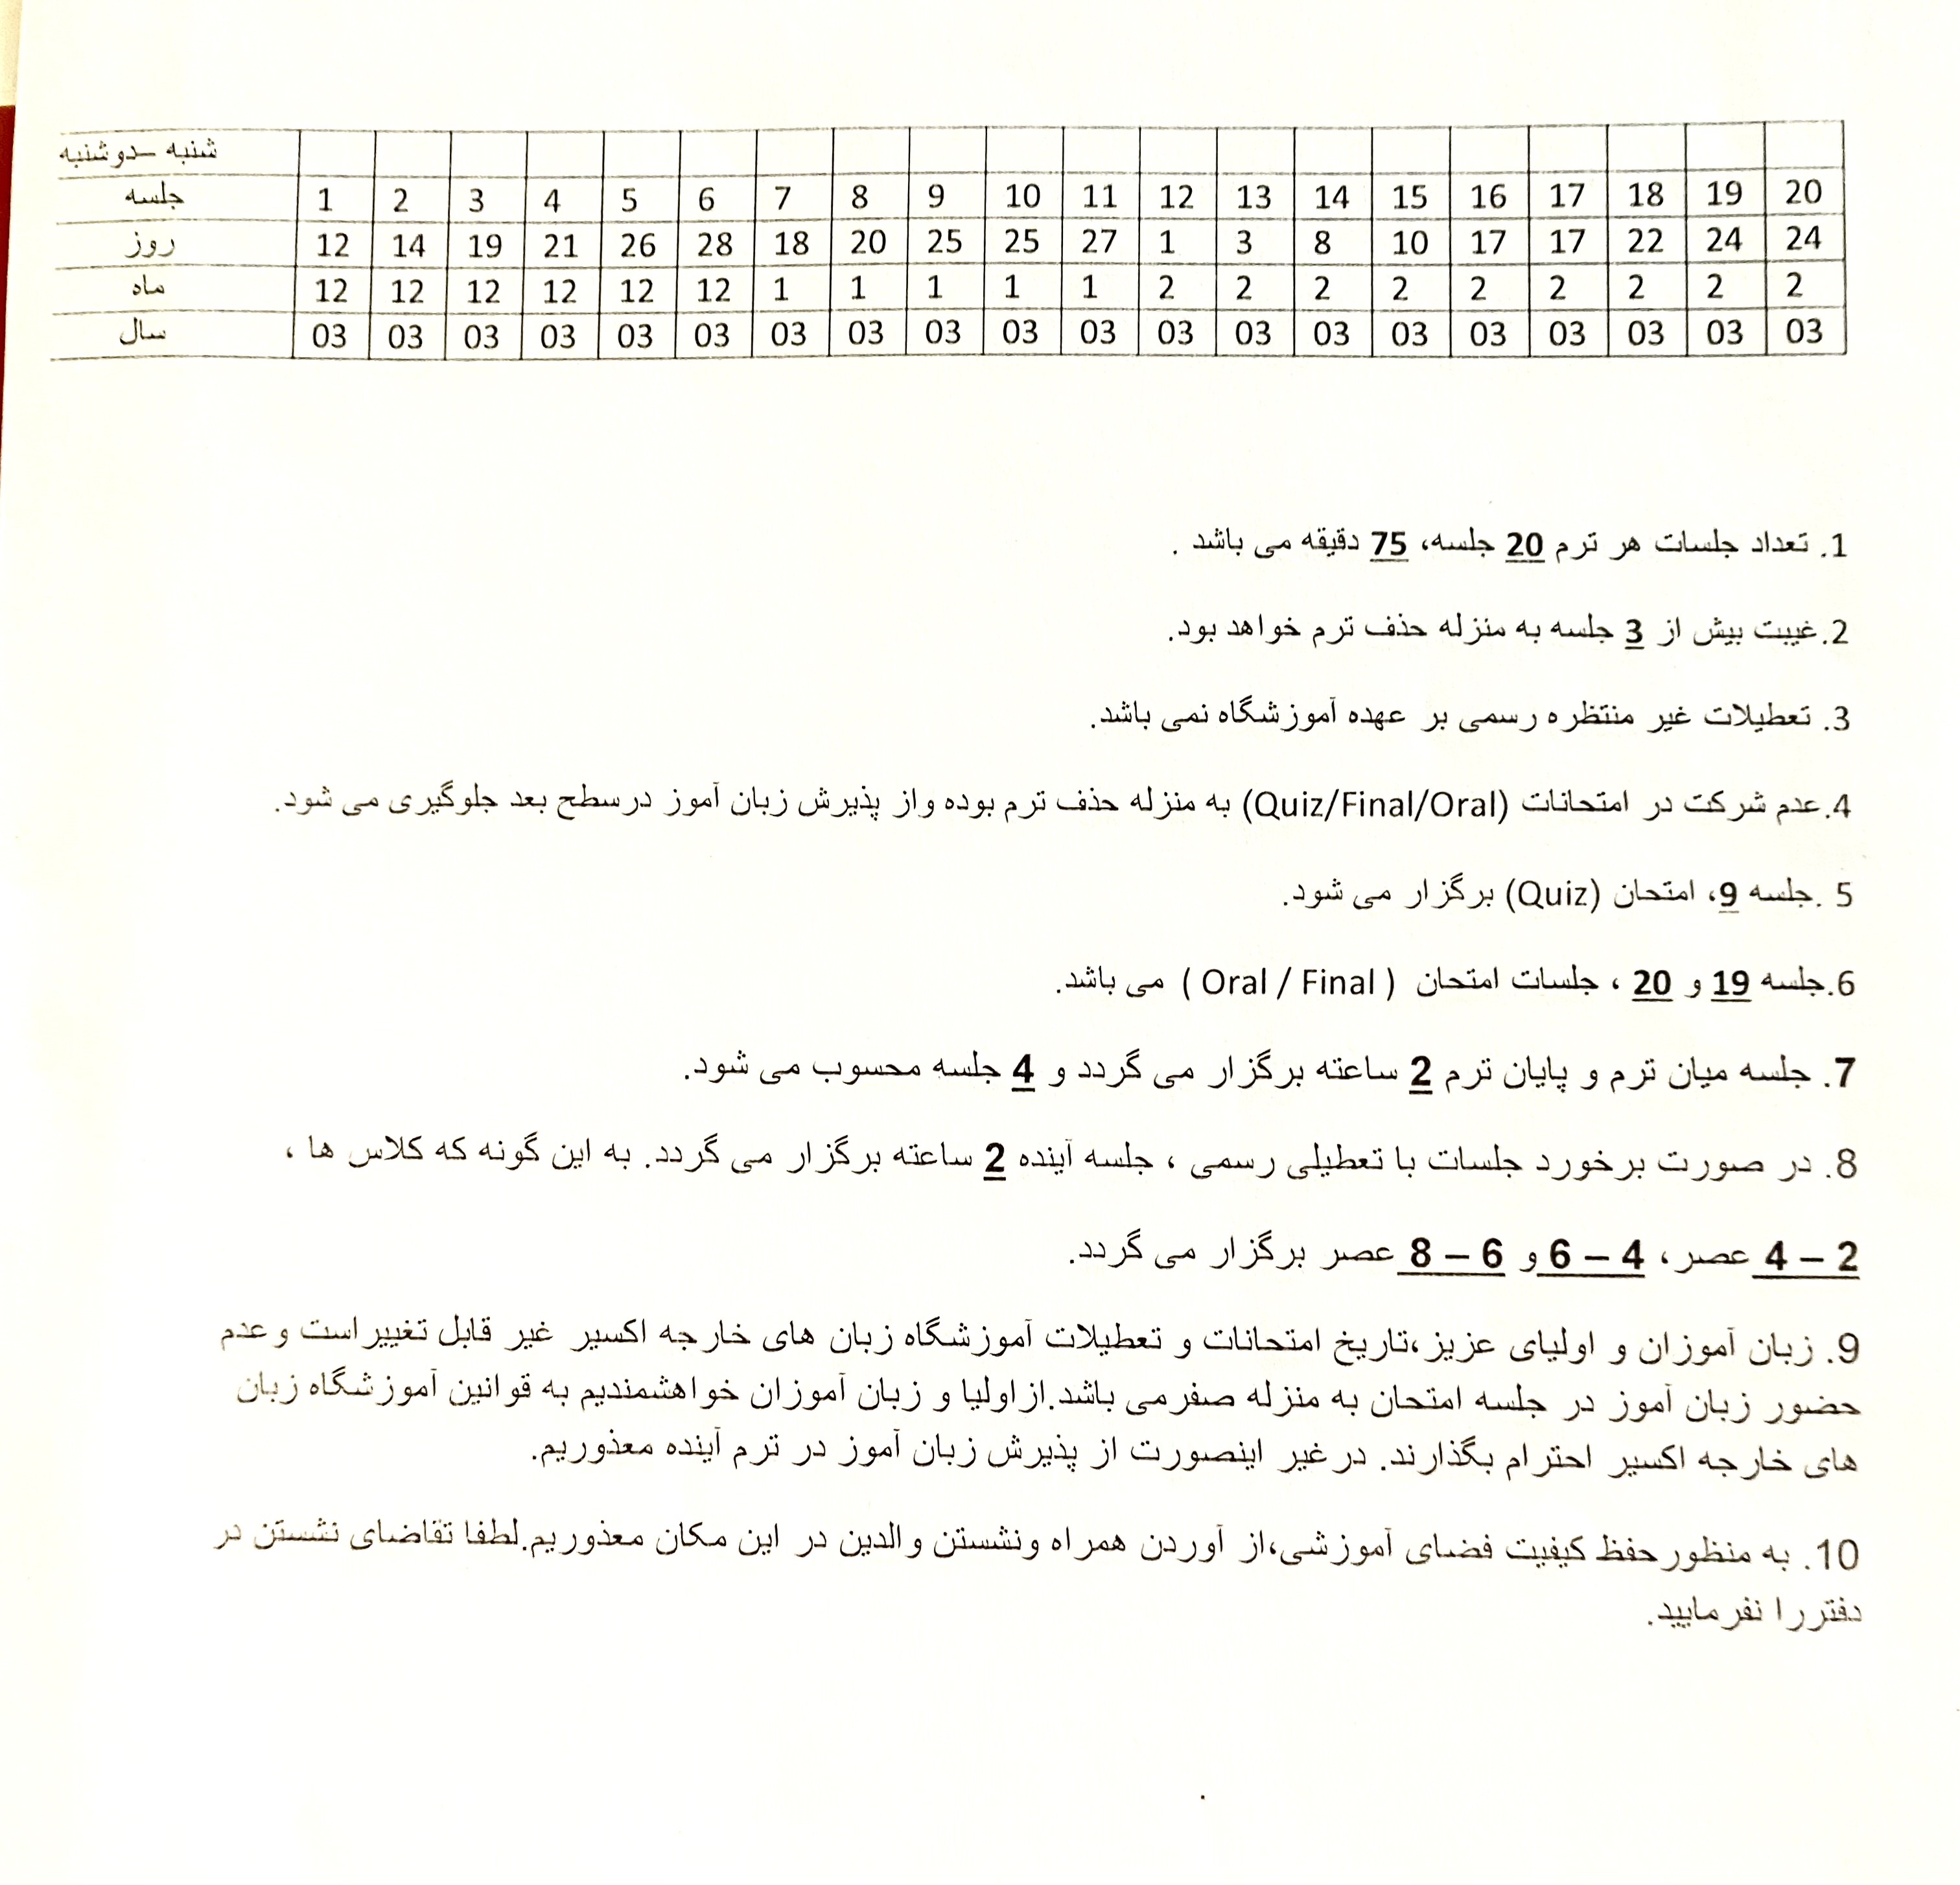 شنبه –دوشنبه
جلسه 1 2 3 4 5 6 7 8 9 10 11 12 13 14 15 16 17 18 19 20
روز 12 14 19 21 26 28 18 20 25 25 27 1 3 8 10 17 17 22 24 24
ماه 12 12 12 12 12 12 1 1 1 1 1 2 2 2 2 2 2 2 2 2
سال 03 03 03 03 03 03 03 03 03 03 03 03 03 03 03 03 03 03 03 03
1. تعداد جلسات هر ترم 20 جلسه، 75 دقیقه می باشد .
2.غیبت بیش از 3 جلسه به منزله حذف ترم خواهد بود.
3. تعطیلات غیر منتظره رسمی بر عهده آموزشگاه نمی باشد.
4.عدم شرکت در امتحانات (Quiz/Final/Oral) به منزله حذف ترم بوده واز پذیرش زبان آموز درسطح بعد جلوگیری می شود.
5 .جلسه 9، امتحان (Quiz) برگزار می شود.
6.جلسه 19 و 20 ، جلسات امتحان ( Oral / Final ) می باشد.
7. جلسه میان ترم و پایان ترم 2 ساعته برگزار می گردد و 4 جلسه محسوب می شود.
8. در صورت برخورد جلسات با تعطیلی رسمی ، جلسه آینده 2 ساعته برگزار می گردد. به این گونه که کلاس ها ،
2 – 4 عصر، 4 – 6 و 6 – 8 عصر برگزار می گردد.
9. زبان آموزان و اولیای عزیز،تاریخ امتحانات و تعطیلات آموزشگاه زبان های خارجه اکسیر غیر قابل تغییراست وعدم
حضور زبان آموز در جلسه امتحان به منزله صفرمی باشد.ازاولیا و زبان آموزان خواهشمندیم به قوانین آموزشگاه زبان
های خارجه اکسیر احترام بگذارند. درغیر اینصورت از پذیرش زبان آموز در ترم آینده معذوریم.
10. به منظورحفظ کیفیت فضای آموزشی،از آوردن همراه ونشستن والدین در این مکان معذوریم.لطفا تقاضای نشستن در
دفتررا نفرمایید.